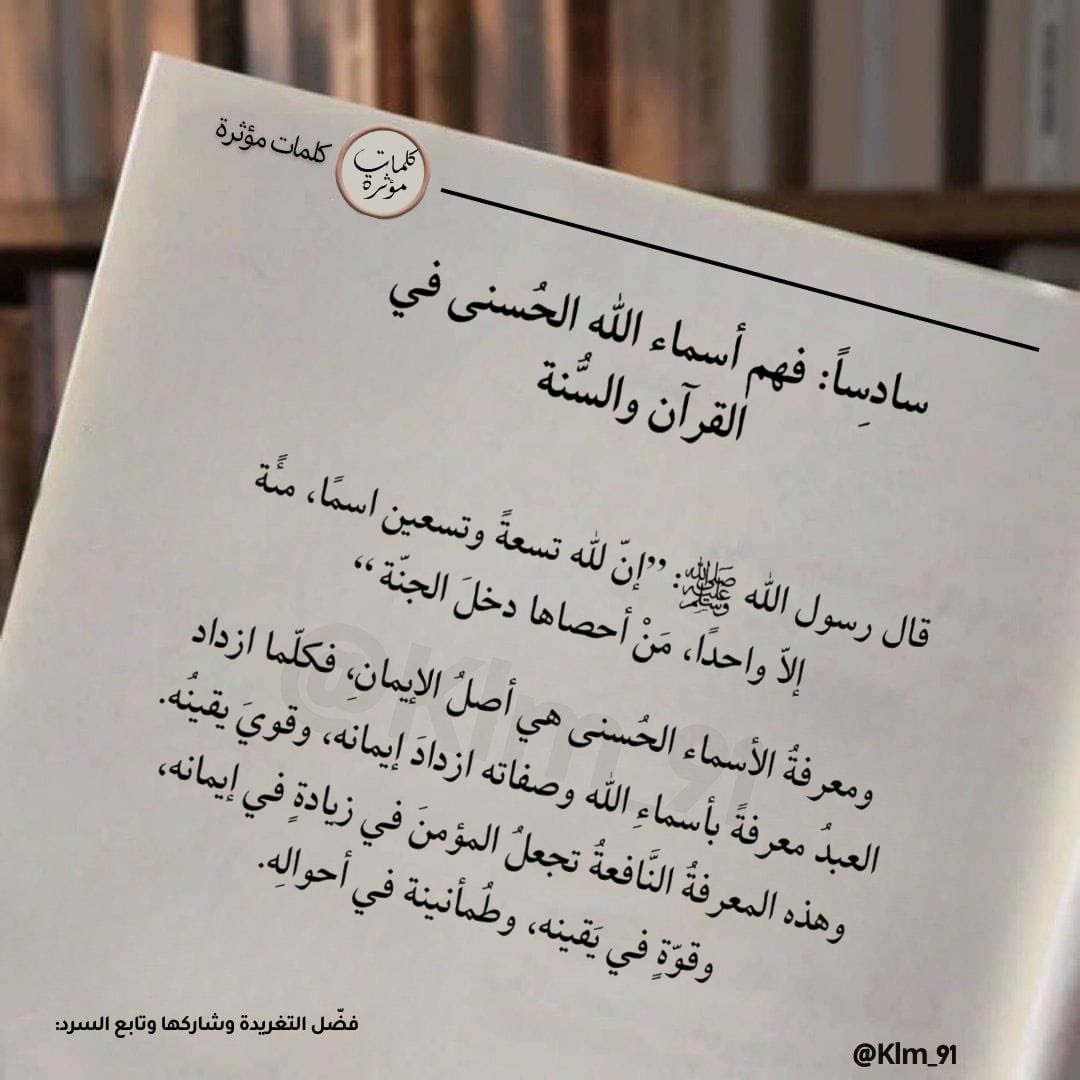 كلمات مؤثرة
كلمات
مؤثرة
سادِساً: فهم أسماء الله الحُسنى في
القرآن والسُّنة
قال رسول الله ﷺ: ”إنّ لله تسعةً وتسعين اسمًا، مئًة
إلاّ واحدًا، مَنْ أحصاها دخلَ الجنّة“
ومعرفةُ الأسماء الحُسنى هي أصلُ الإيمانِ، فكلّما ازداد
العبدُ معرفةً بأسماءِ الله وصفاته ازدادَ إيمانه، وقويَ يقينُه.
وهذه المعرفةُ النَّافعةُ تجعلُ المؤمنَ في زيادةٍ في إيمانه،
وقوّةٍ في يَقينه، وطُمأنينة في أحوالِه.
@Klm_91
فضّل التغريدة وشاركها وتابع السرد:
@Klm_91